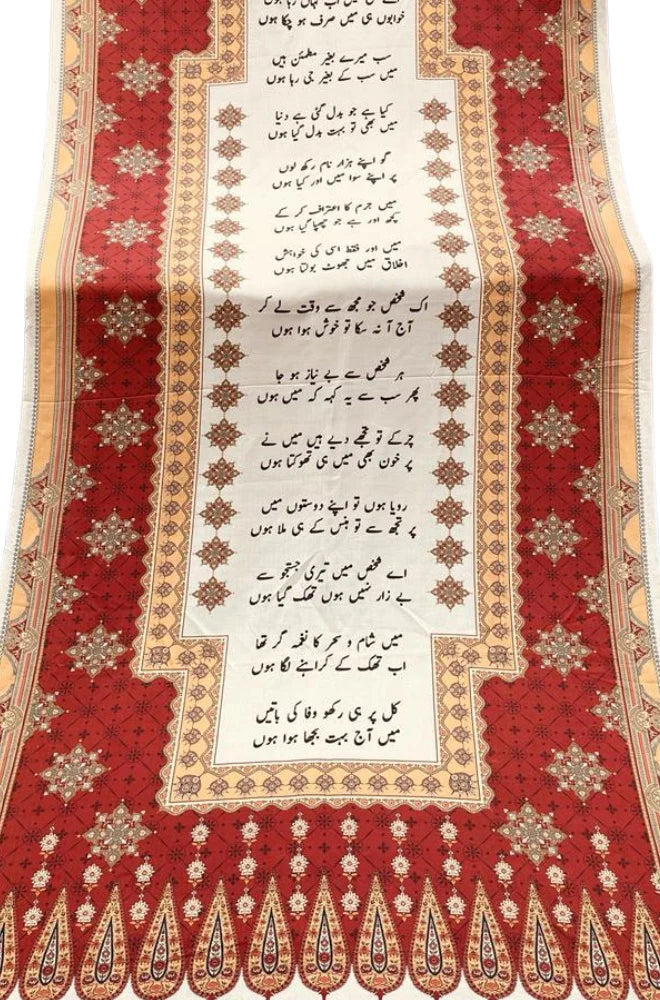 میں اب کہاں رہا ہوں
خوابوں ہی میں صرف ہو چکا ہوں
سب میرے بغیر مطمئن ہیں
میں سب کے بغیر جی رہا ہوں
کیا ہے جو بدل گئی ہے دنیا
میں بھی تو بہت بدل گیا ہوں
گو اپنے ہزار نام رکھ لوں
پر اپنے سوا میں اور کیا ہوں
میں جرم کا اعتراف کر کے
کچھ اور ہے جو چھپا گیا ہوں
میں اور فقط اسی کی خواہش
اخلاق میں جھوٹ بولتا ہوں
اک شخص جو مجھ سے وقت لے کر
آج آ نہ سکا تو خوش ہوا ہوں
ہر شخص سے بے نیاز ہو جا
پھر سب سے یہ کہہ کہ میں ہوں
چرکے تو تجھے دیے ہیں میں نے
پر خون بھی میں ہی تھوکتا ہوں
رویا ہوں تو اپنے دوستوں میں
پر تجھ سے تو ہنس کے ہی ملا ہوں
اے شخص میں تیری جستجو سے
بے زار نہیں ہوں تھک گیا ہوں
میں شام و سحر کا نغمہ گر تھا
اب تھک کے کراہنے لگا ہوں
کل پر ہی رکھو وفا کی باتیں
میں آج بہت بجھا ہوا ہوں